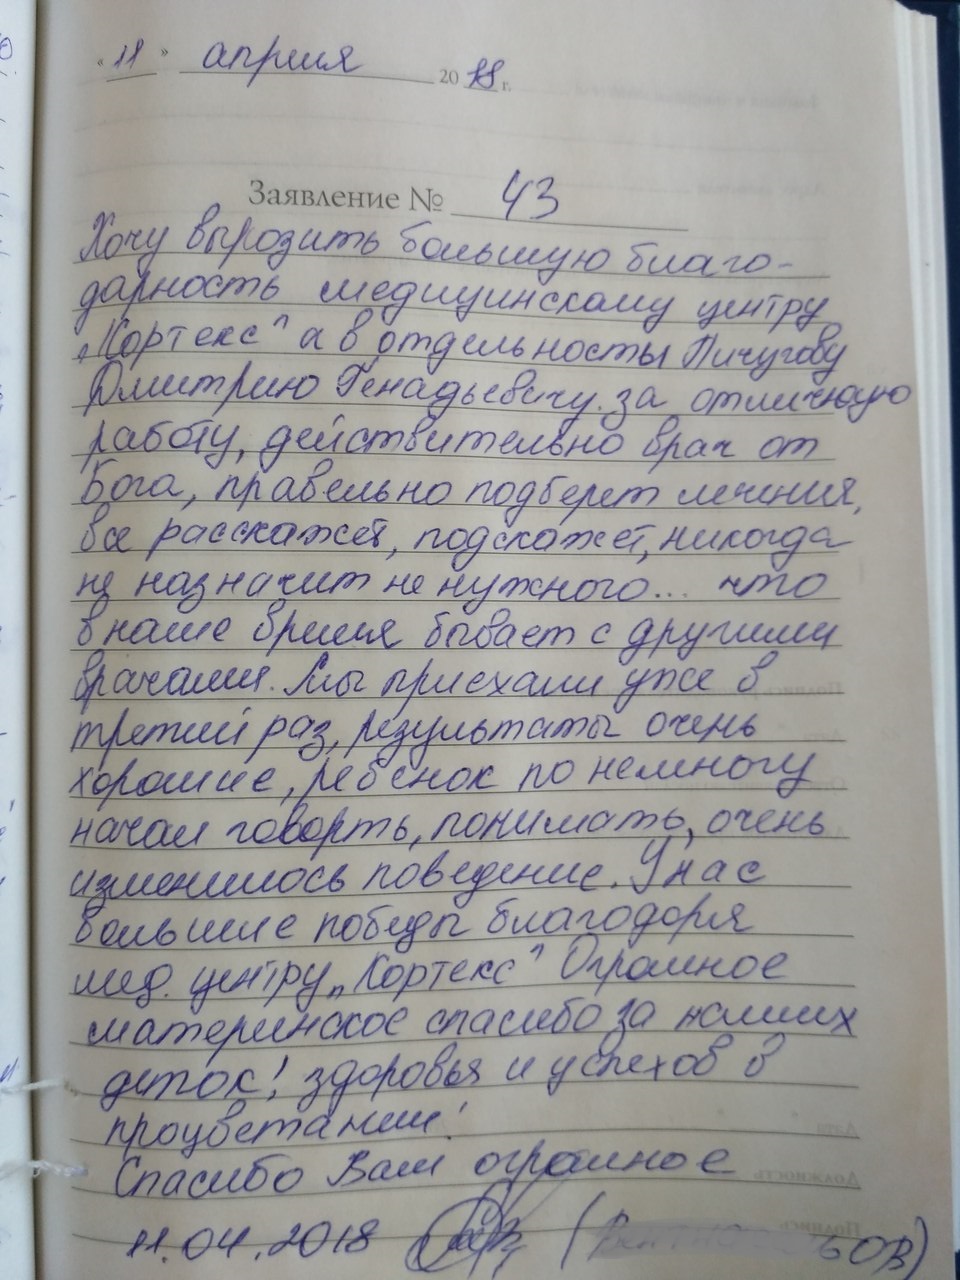 « 11 » апреля 2018 г.
Заявление № 43
Хочу вырозить большую благо-
дарность медицинскому центру
„Кортекс" а в отдельносты Пичугову
Дмитрию Генадьевичу. за отличную
работу, действительно врач от
Бога, правельно подберет лечения,
все расскажет, подскажет, никогда
не назначит не нужного... что
в наше время бывает с другими
врачами. Мы приехали уже в
третий раз, результаты очень
хорошие, ребенок по немногу
начал говорть, понимать, очень
изменилось поведение. У нас
большие победы благодоря
мед. центру „Кортекс" Огромное
материнское спасибо за наших
деток! здоровья и успехов в
процветании!
Спасибо Вам огромное
11.04.2018